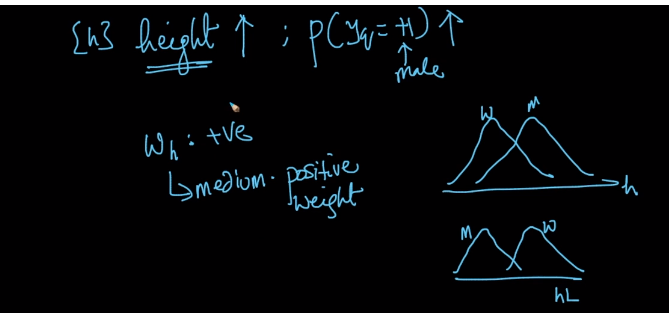 {h} height ↑ ; P(yq = +1) ↑
male
Wh : +ve
↳ medium. positive
weight
W M
h
M W
hL